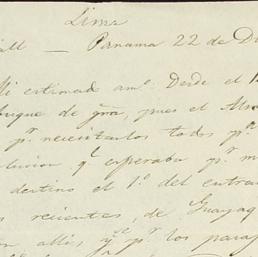 Lima
all — Panama 22 de D
Mi estimado amº. Desde el 1
buque de gra, pues el Alm
pr. necesitarlos todos pr.
olucion qe esperaba pr. m
destino el 1º. del entra
s recientes, de Guayaq
on allis y pr. los para